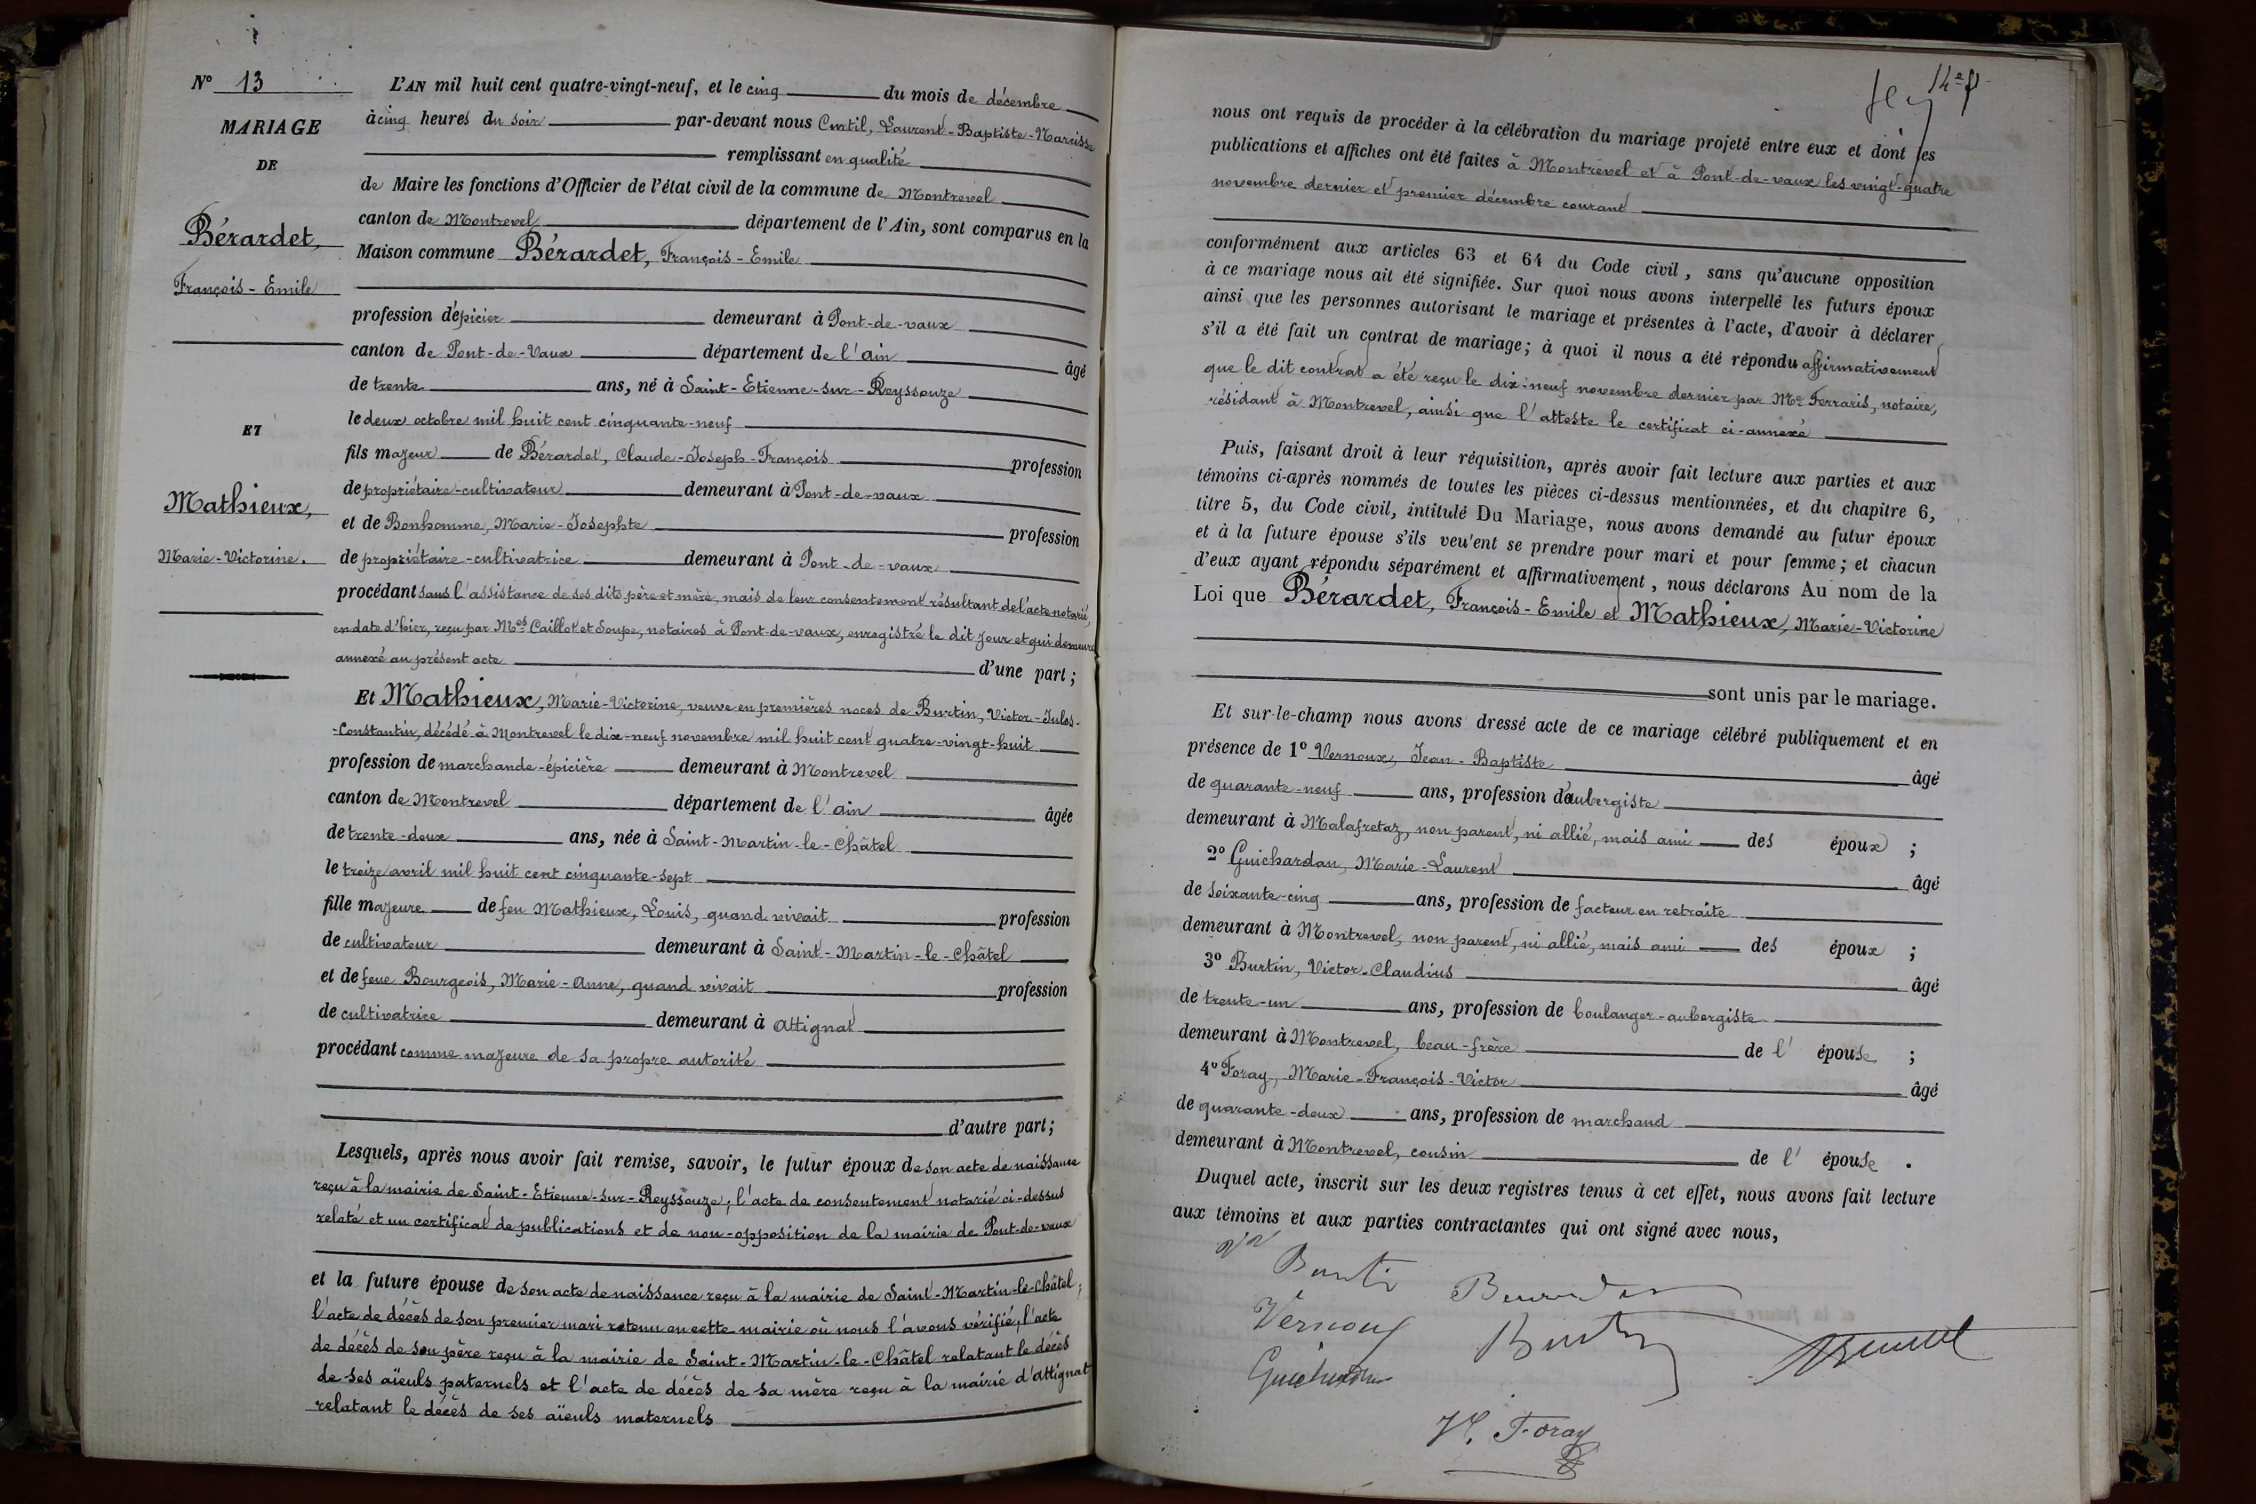 N° 13
MARIAGE
DE
Bérardet,
François-Emile
ET
Mathieux,
Marie-Victorine.
L'AN mil huit cent quatre-vingt-neuf, et le cinq du mois de décembre
à cinq heures du soir par-devant nous Curtil, Laurent-Baptiste-Narcisse
remplissant en qualité
de Maire les fonctions d'Officier de l'état civil de la commune de Montrevel
canton de Montrevel département de l'Ain, sont comparus en la
Maison commune Bérardet, François-Emile
profession d'épicier demeurant à Pont-de-vaux
canton de Pont-de-Vaux département de l'ain âgé
de trente ans, né à Saint-Etienne-sur-Reyssouze
le deux octobre mil huit cent cinquante-neuf
fils majeur de Bérardet, Claude-Joseph-François profession
de propriétaire-cultivateur demeurant à Pont-de-vaux
et de Bonhomme, Marie-Josephte profession
de propriétaire-cultivatrice demeurant à Pont-de-vaux
procédant sans l'assistance de ses dits père et mère, mais de leur consentement résultant de l'acte notarié,
en date d'hier, reçu par Mes Caillot et Soupe, notaires à Pont-de-vaux, enregistré le dit jour et qui demeure
annexé au présent acte d'une part ;
Et Mathieux, Marie-Victorine, veuve en premières noces de Burtin, Victor-Jules-
-Constantin, décédé à Montrevel le dix-neuf novembre mil huit cent quatre-vingt-huit
profession de marchande-épicière demeurant à Montrevel
canton de Montrevel département de l'ain âgée
de trente-deux ans, née à Saint-Martin-le-Châtel
le treize avril mil huit cent cinquante-sept
fille majeure de feu Mathieux, Louis, quand vivait profession
de cultivateur demeurant à Saint-Martin-le-Châtel
et de feue Bourgeois, Marie-Anne, quand vivait profession
de cultivatrice demeurant à Attignat
procédant comme majeure de sa propre autorité
d'autre part ;
Lesquels, après nous avoir fait remise, savoir, le futur époux de son acte de naissance
reçu à la mairie de Saint-Etienne-sur-Reyssouze ; l'acte de consentement notarié ci-dessus
relaté et un certificat de publications et de non-opposition de la mairie de Pont-de-vaux
et la future épouse de son acte de naissance reçu à la mairie de Saint-Martin-le-Châtel ;
l'acte de décès de son premier mari retenu en cette mairie où nous l'avons vérifié, l'acte
de décès de son père reçu à la mairie de Saint-Martin-le-Châtel relatant le décès
de ses aïeuls paternels et l'acte de décès de sa mère reçu à la mairie d'Attignat
relatant le décès de ses aïeuls maternels
14e f
nous ont requis de procéder à la célébration du mariage projeté entre eux et dont les
publications et affiches ont été faites à Montrevel et à Pont-de-vaux les vingt-quatre
novembre dernier et premier décembre courant
conformément aux articles 63 et 64 du Code civil, sans qu'aucune opposition
à ce mariage nous ait été signifiée. Sur quoi nous avons interpellé les futurs époux
ainsi que les personnes autorisant le mariage et présentes à l'acte, d'avoir à déclarer
s'il a été fait un contrat de mariage ; à quoi il nous a été répondu affirmativement
que le dit contrat a été reçu le dix-neuf novembre dernier par Me Ferraris, notaire,
résidant à Montrevel, ainsi que l'atteste le certificat ci-annexé
Puis, faisant droit à leur réquisition, après avoir fait lecture aux parties et aux
témoins ci-après nommés de toutes les pièces ci-dessus mentionnées, et du chapitre 6,
titre 5, du Code civil, intitulé Du Mariage, nous avons demandé au futur époux
et à la future épouse s'ils veu'ent se prendre pour mari et pour femme ; et chacun
d'eux ayant répondu séparément et affirmativement, nous déclarons Au nom de la
Loi que Bérardet, François-Emile et Mathieux, Marie-Victorine
sont unis par le mariage.
Et sur-le-champ nous avons dressé acte de ce mariage célébré publiquement et en
présence de 1° Vernoux, Jean-Baptiste âgé
de quarante-neuf ans, profession d'aubergiste
demeurant à Malafretaz, non parent, ni allié, mais ami des époux ;
2° Guichardan, Marie-Laurent âgé
de soixante-cinq ans, profession de facteur en retraite
demeurant à Montrevel, non parent, ni allié, mais ami des époux ;
3° Burtin, Victor-Claudius âgé
de trente-un ans, profession de boulanger-aubergiste
demeurant à Montrevel, beau-frère de l'épouse ;
4° Foray, Marie-François-Victor âgé
de quarante-deux ans, profession de marchand
demeurant à Montrevel, cousin de l'épouse.
Duquel acte, inscrit sur les deux registres tenus à cet effet, nous avons fait lecture
aux témoins et aux parties contractantes qui ont signé avec nous,
Vernoux
Foray